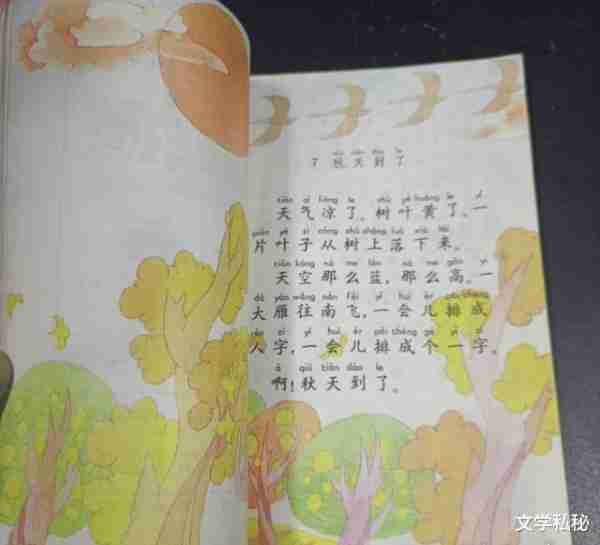 7 秋天到了
tiān qì liáng le shù yè huáng le yí
天气凉了,树叶黄了。一
piàn yè zi cóng shù shàng luò xià lái
片叶子从树上落下来。
tiān kōng nà me lán nà me gāo yì
天空那么蓝,那么高。一
dà yàn wǎng nán fēi yí huì ér pái chéng
大雁往南飞,一会儿排成
rén zì yí huì ér pái chéng gè yī zì
人字,一会儿排成个一字。
à qiū tiān dào le
啊!秋天到了。
文学私秘